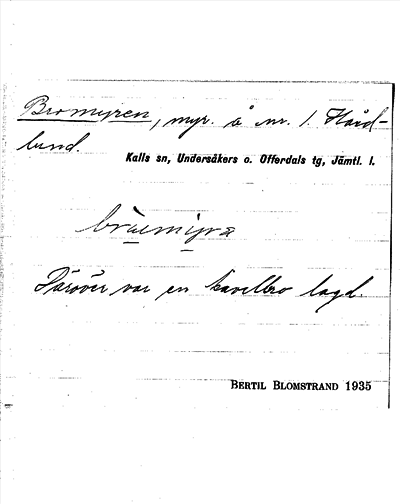 Bromyren, myr. å nr. 1. Hård-
lund.
Kalls sn, Undersåkers o. Offerdals tg, Jämtl. l.
Däröver var en kavelbro lagd.
BERTIL BLOMSTRAND 1935